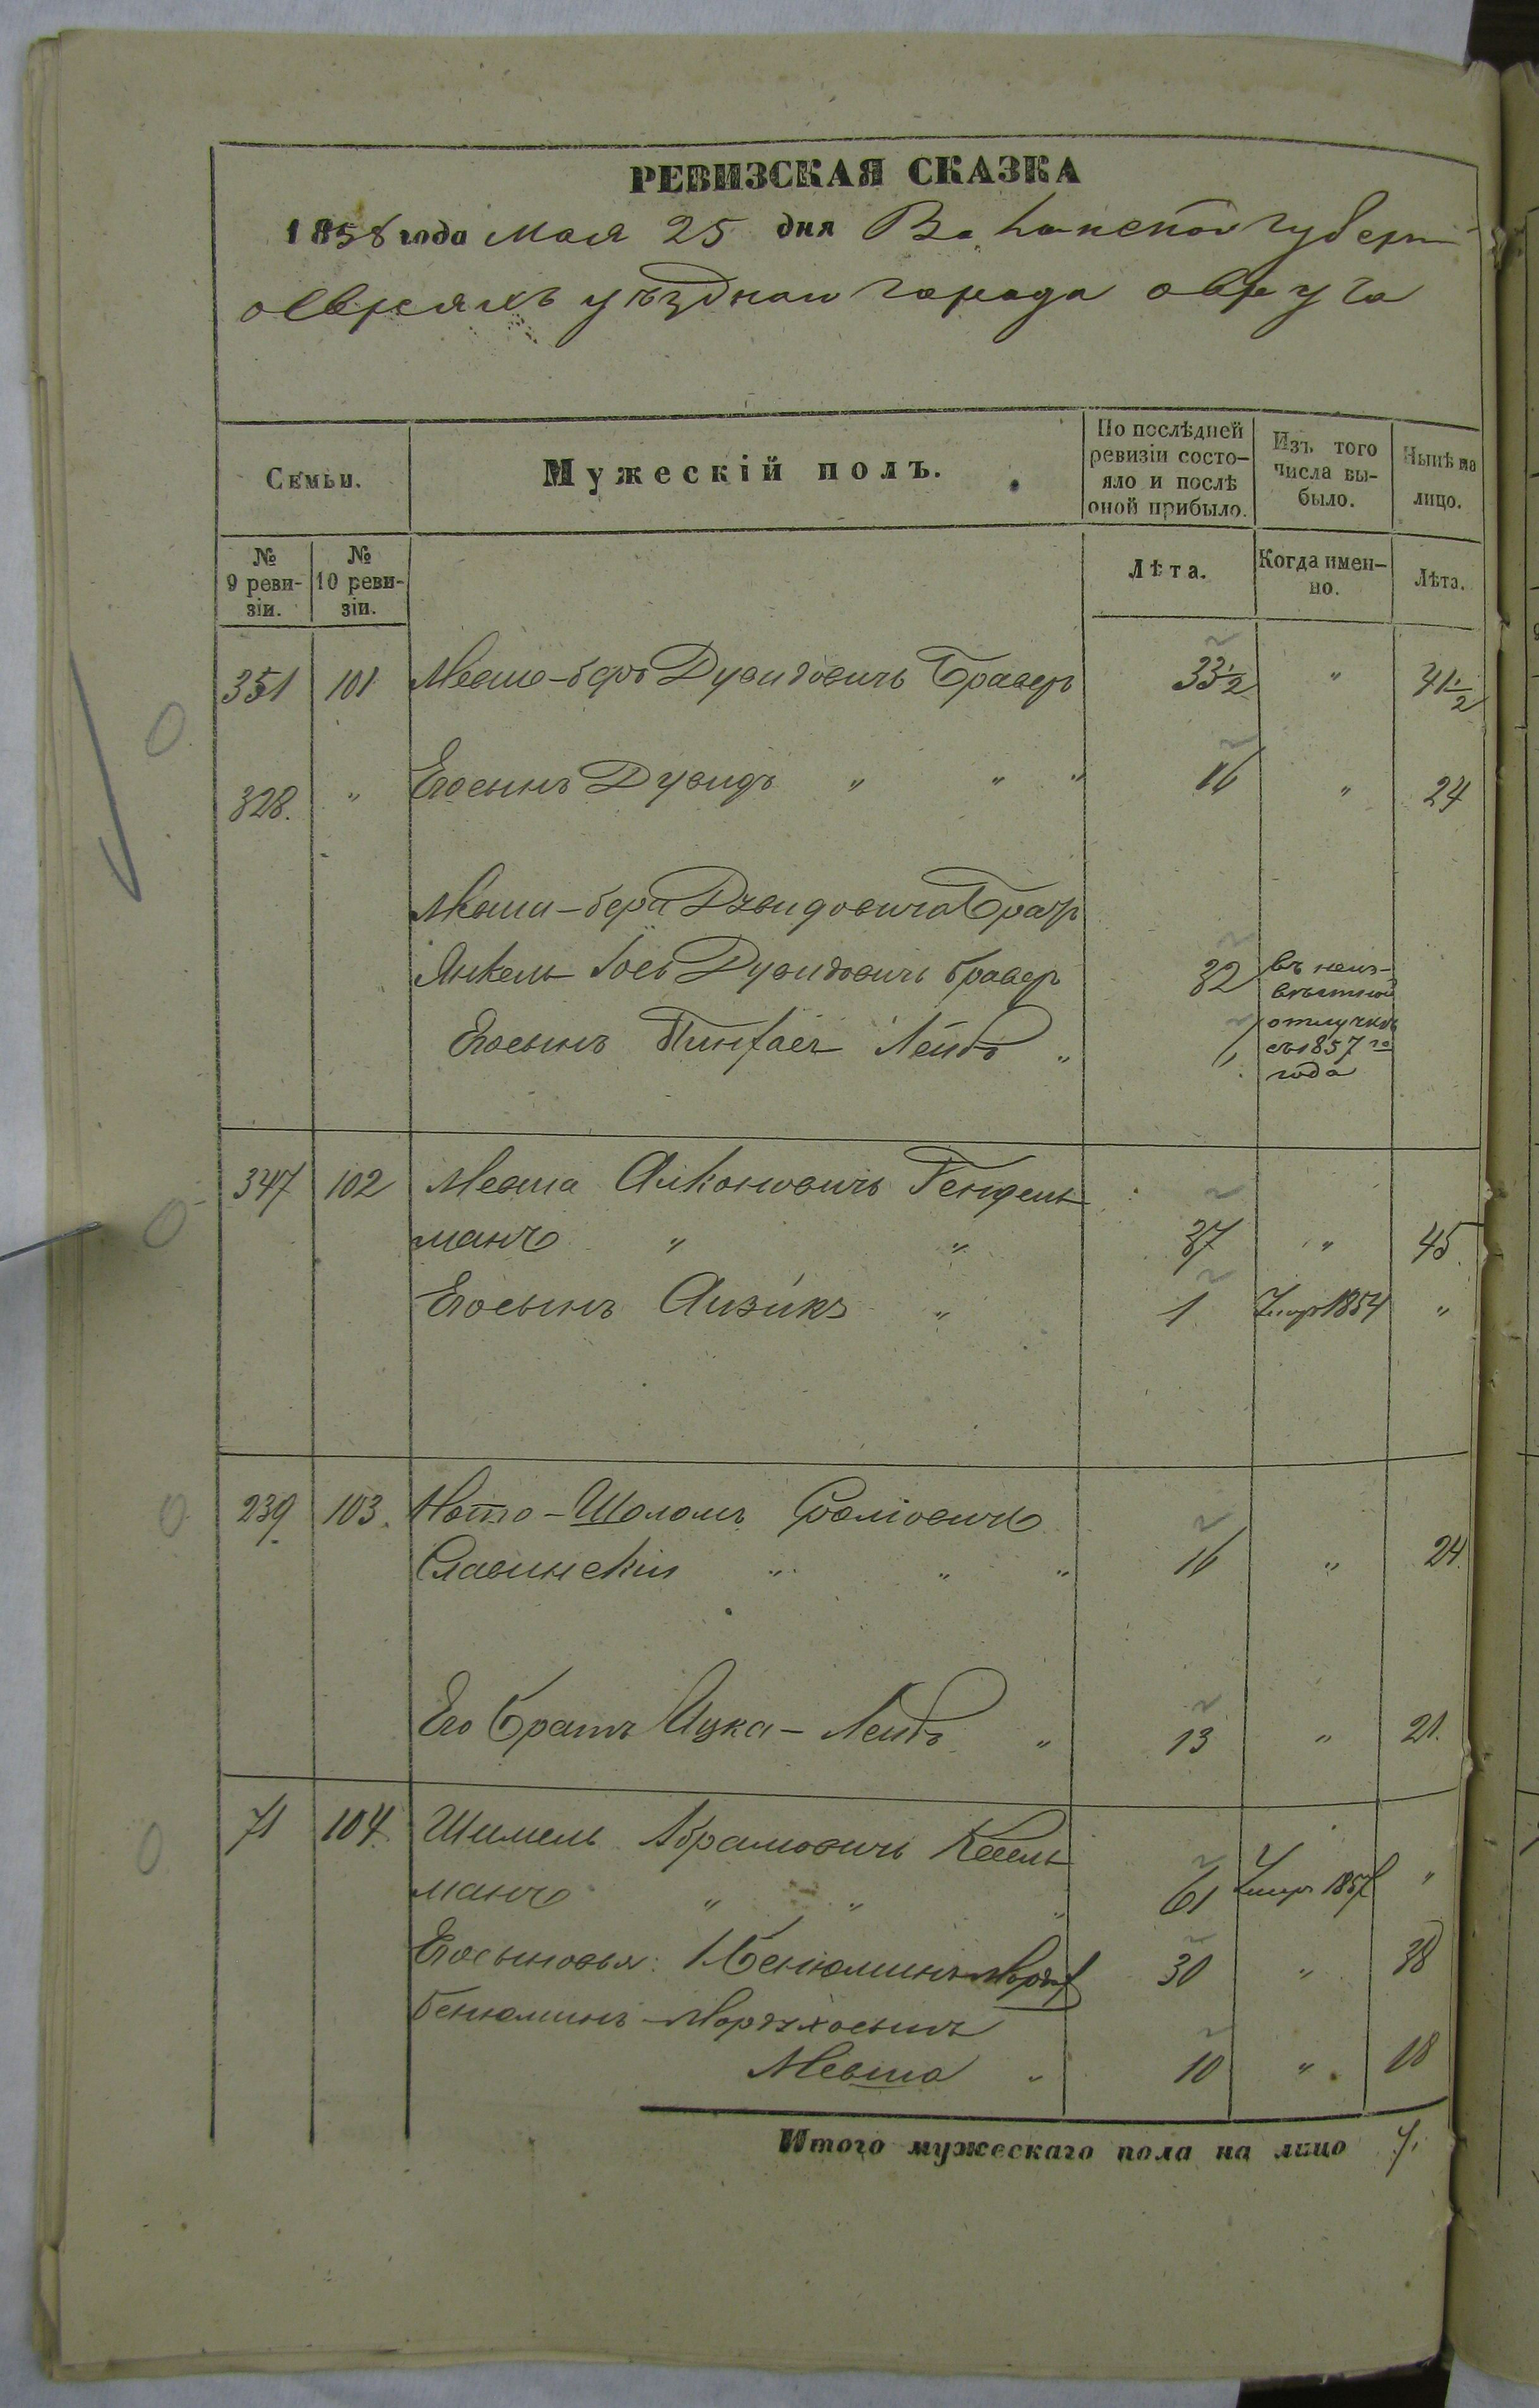 РЕВИЗСКАЯ СКАЗКА
1858 года мая 25 дня Волынской губерн
оевреяхъ уѣзднаго города овруча
Семьи.
Мужескій полъ.
По послѣдней ревизіи состо-яло и послѣ оной прибыло.
Изъ того числа вы-было.
Нынѣ на лицо.
№ 9 реви-зіи.
№ 10 реви-зіи.
Лѣта.
Когда имен-но.
Лѣта.
351 101 Мошо-беръ Дувидовичъ Браверъ 33 1/2 " 41 1/2
328. " Егосынъ Дувидъ " " " 16 " 24
Моши-бера Дувидовича
Янкель Дувидовичъ Браверъ 32 въ неиз-
вѣстной
Егосынъ Лейбъ " 1 отлучкѣ
съ 1857 го
года
347 102 Мовша Гендель
манъ " " 37 " 45
Егосынъ Аизикъ " 1 Умер 1854 "
239 103. Ното-Шоломъ
Славинскій " " " 16 " 24.
Его братъ Ицка-Лейбъ " 13 " 21.
71 104 Шимель Абрамовичъ Кесель
манъ " " " 61 Умеръ 1857 "
Егосыновья: 1 Бенюминъ 30 " 38
Бенюминъ-Мордхосынъ
Мовша " 10 " 18
Итого мужескаго пола на лицо 7.